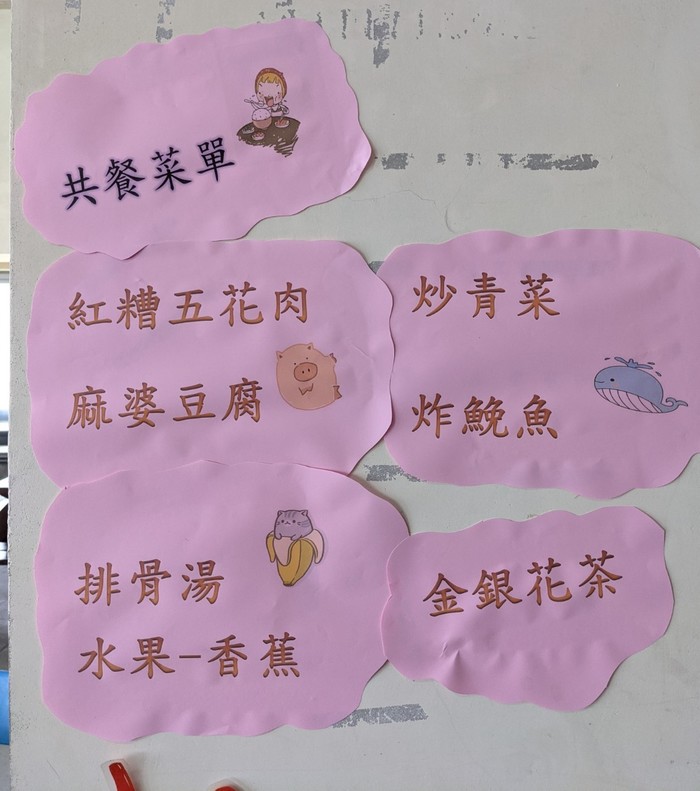 共餐菜單
紅糟五花肉
麻婆豆腐
炒青菜
炸鮸魚
排骨湯
水果-香蕉
金銀花茶